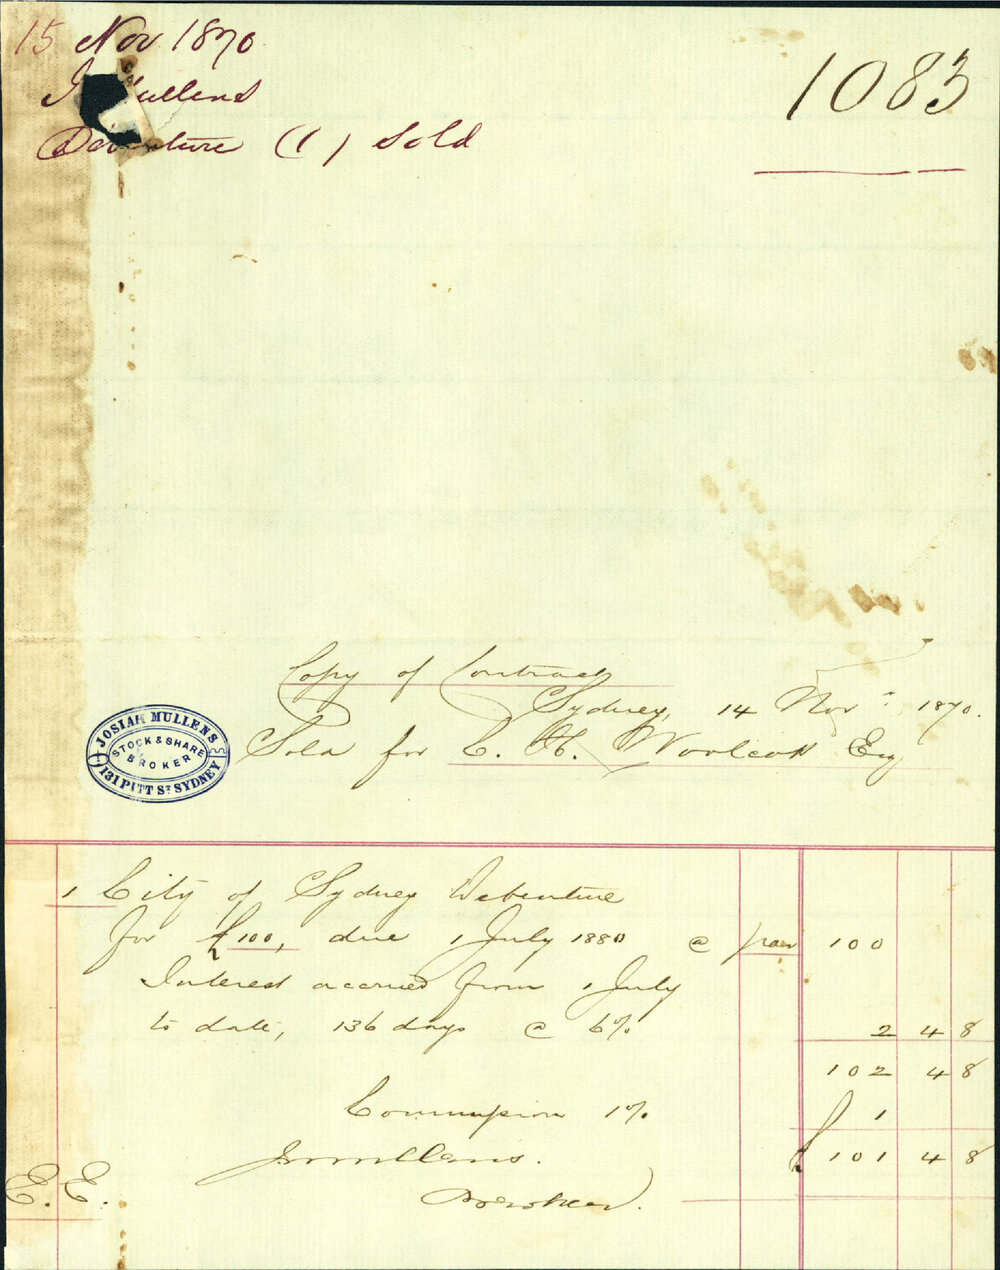 15 Nov 1870
1083
J Mullens
Debenture (1) Sold
Copy of Contract
Sydney, 14 Novr 1870.
Sold for C. H. Woolcott Esq
JOSIAH MULLENS
STOCK & SHARE
BROKER
131 PITT ST SYDNEY
1 City of Sydney Debenture
for £100, due 1 July 1880 @ par 100
Interest accrued from 1 July
to date, 136 days @ 6% 2 4 8
102 4 8
Commission 1% 1
J Mullens. £ 101 4 8
Broker.
E. E.